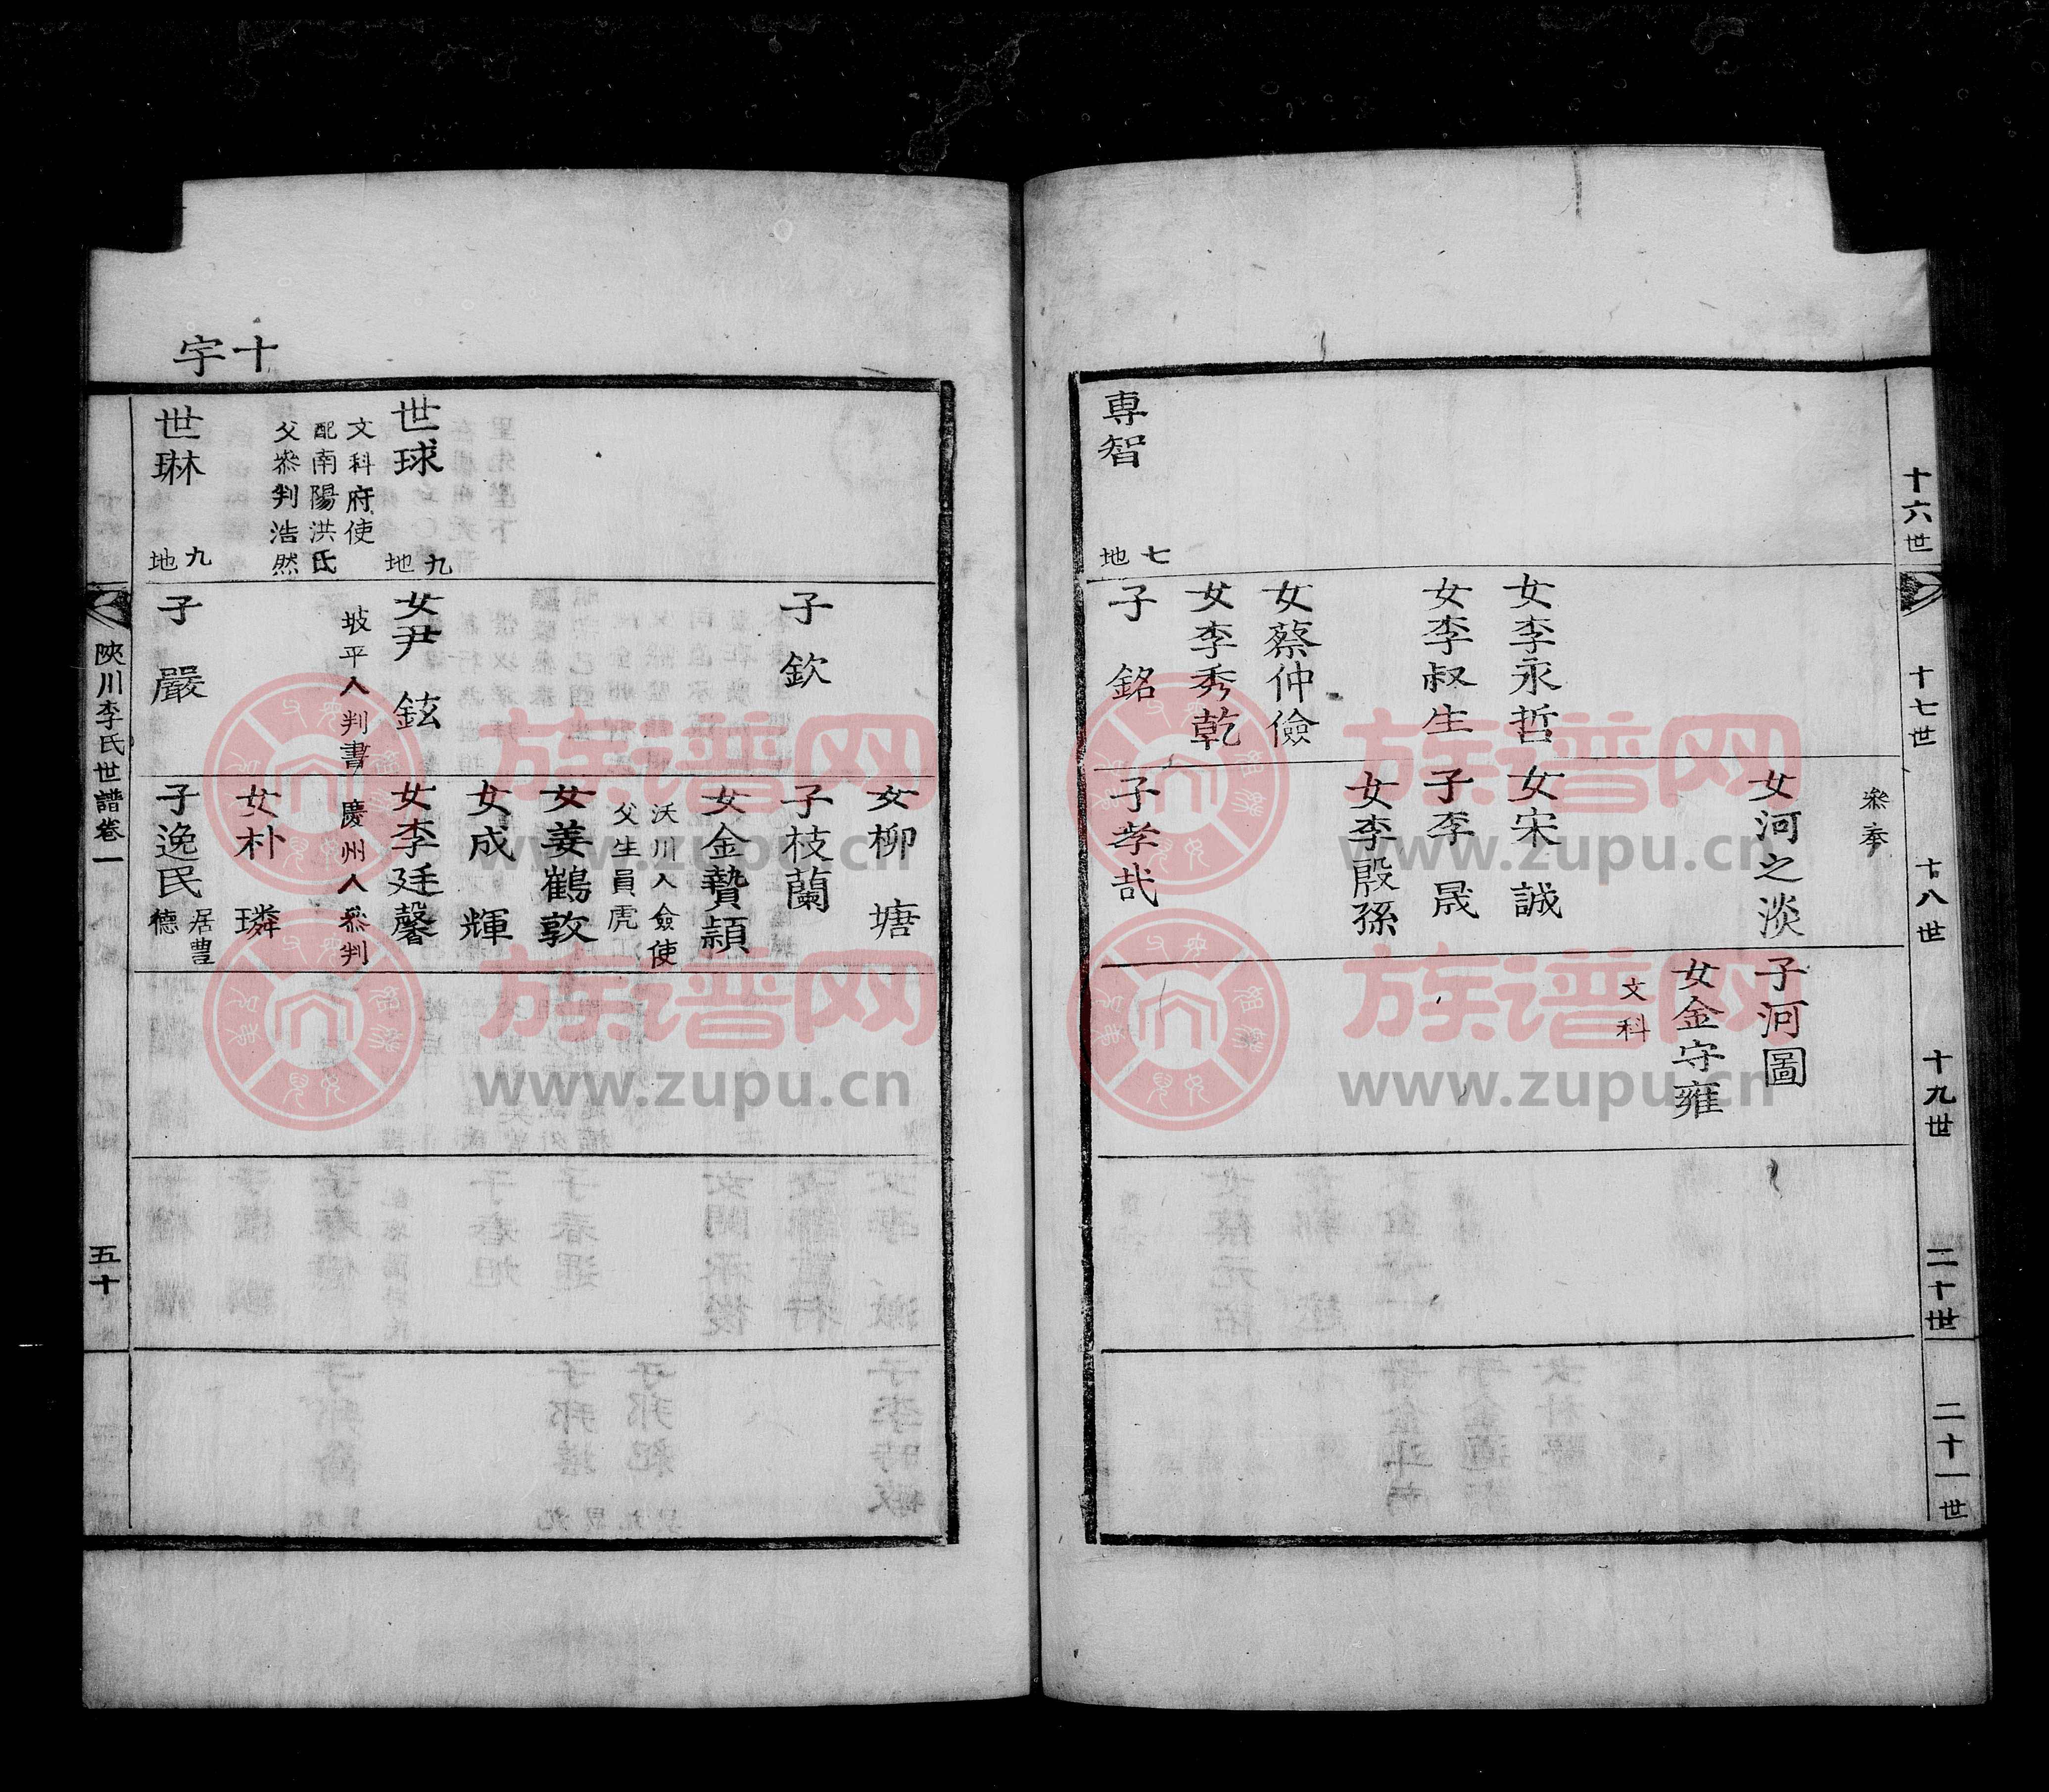 十六世
十七世
十八世
十九世
二十世
二十一世
叅奉
女河之淡
子河圖
女金守雍
文科
女李永哲
女宋誠
女李叔生
子李晟
女李殷孫
女蔡仲儉
女李秀乾
專智
七
地
子銘
子孝哉
十
宇
女柳塘
子欽
子枝蘭
女金贄頴
沃川人僉使
父生員虎
女姜鶴敦
女成輝
世球
九
地
文科府使
配南陽洪氏
父叅判浩然
女尹鉉
坡平人判書
女李廷馨
慶州人叅判
女朴璘
世琳
九
地
子嚴
子逸民
居豊
德
陜川李氏世譜卷一
五十
族谱网
www.zupu.cn
族谱网
www.zupu.cn
族谱网
www.zupu.cn
族谱网
www.zupu.cn